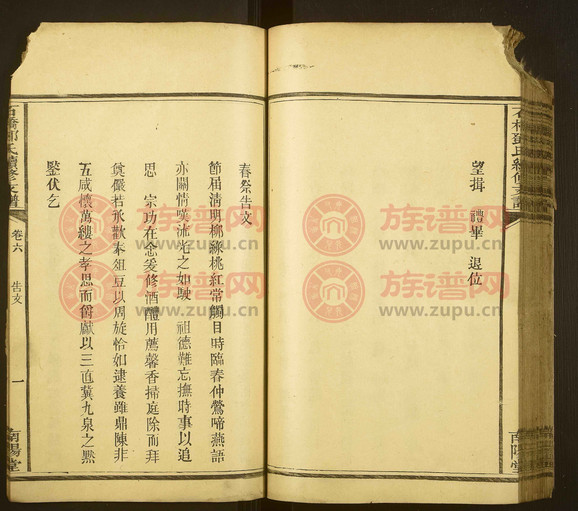 望揖 禮畢 退位
石橋鄧氏續修支譜
南陽堂
春祭告文
節屆清明柳綠桃紅常觸目時臨春仲鶯啼燕語
亦關情嘆流光之如駛 祖德難忘撫時事以追
思 宗功在念爰修酒醴用薦馨香掃庭除而拜
奠儼若承歡奉俎豆以周旋恰如逮養雖鼎陳非
五咸懷萬縷之孝思而爵獻以三直冀九泉之默
鑒伏乞
石橋鄧氏續修支譜
卷六 告文
一
南陽堂
族谱网
www.zupu.cn
族谱网
www.zupu.cn
族谱网
www.zupu.cn
族谱网
www.zupu.cn